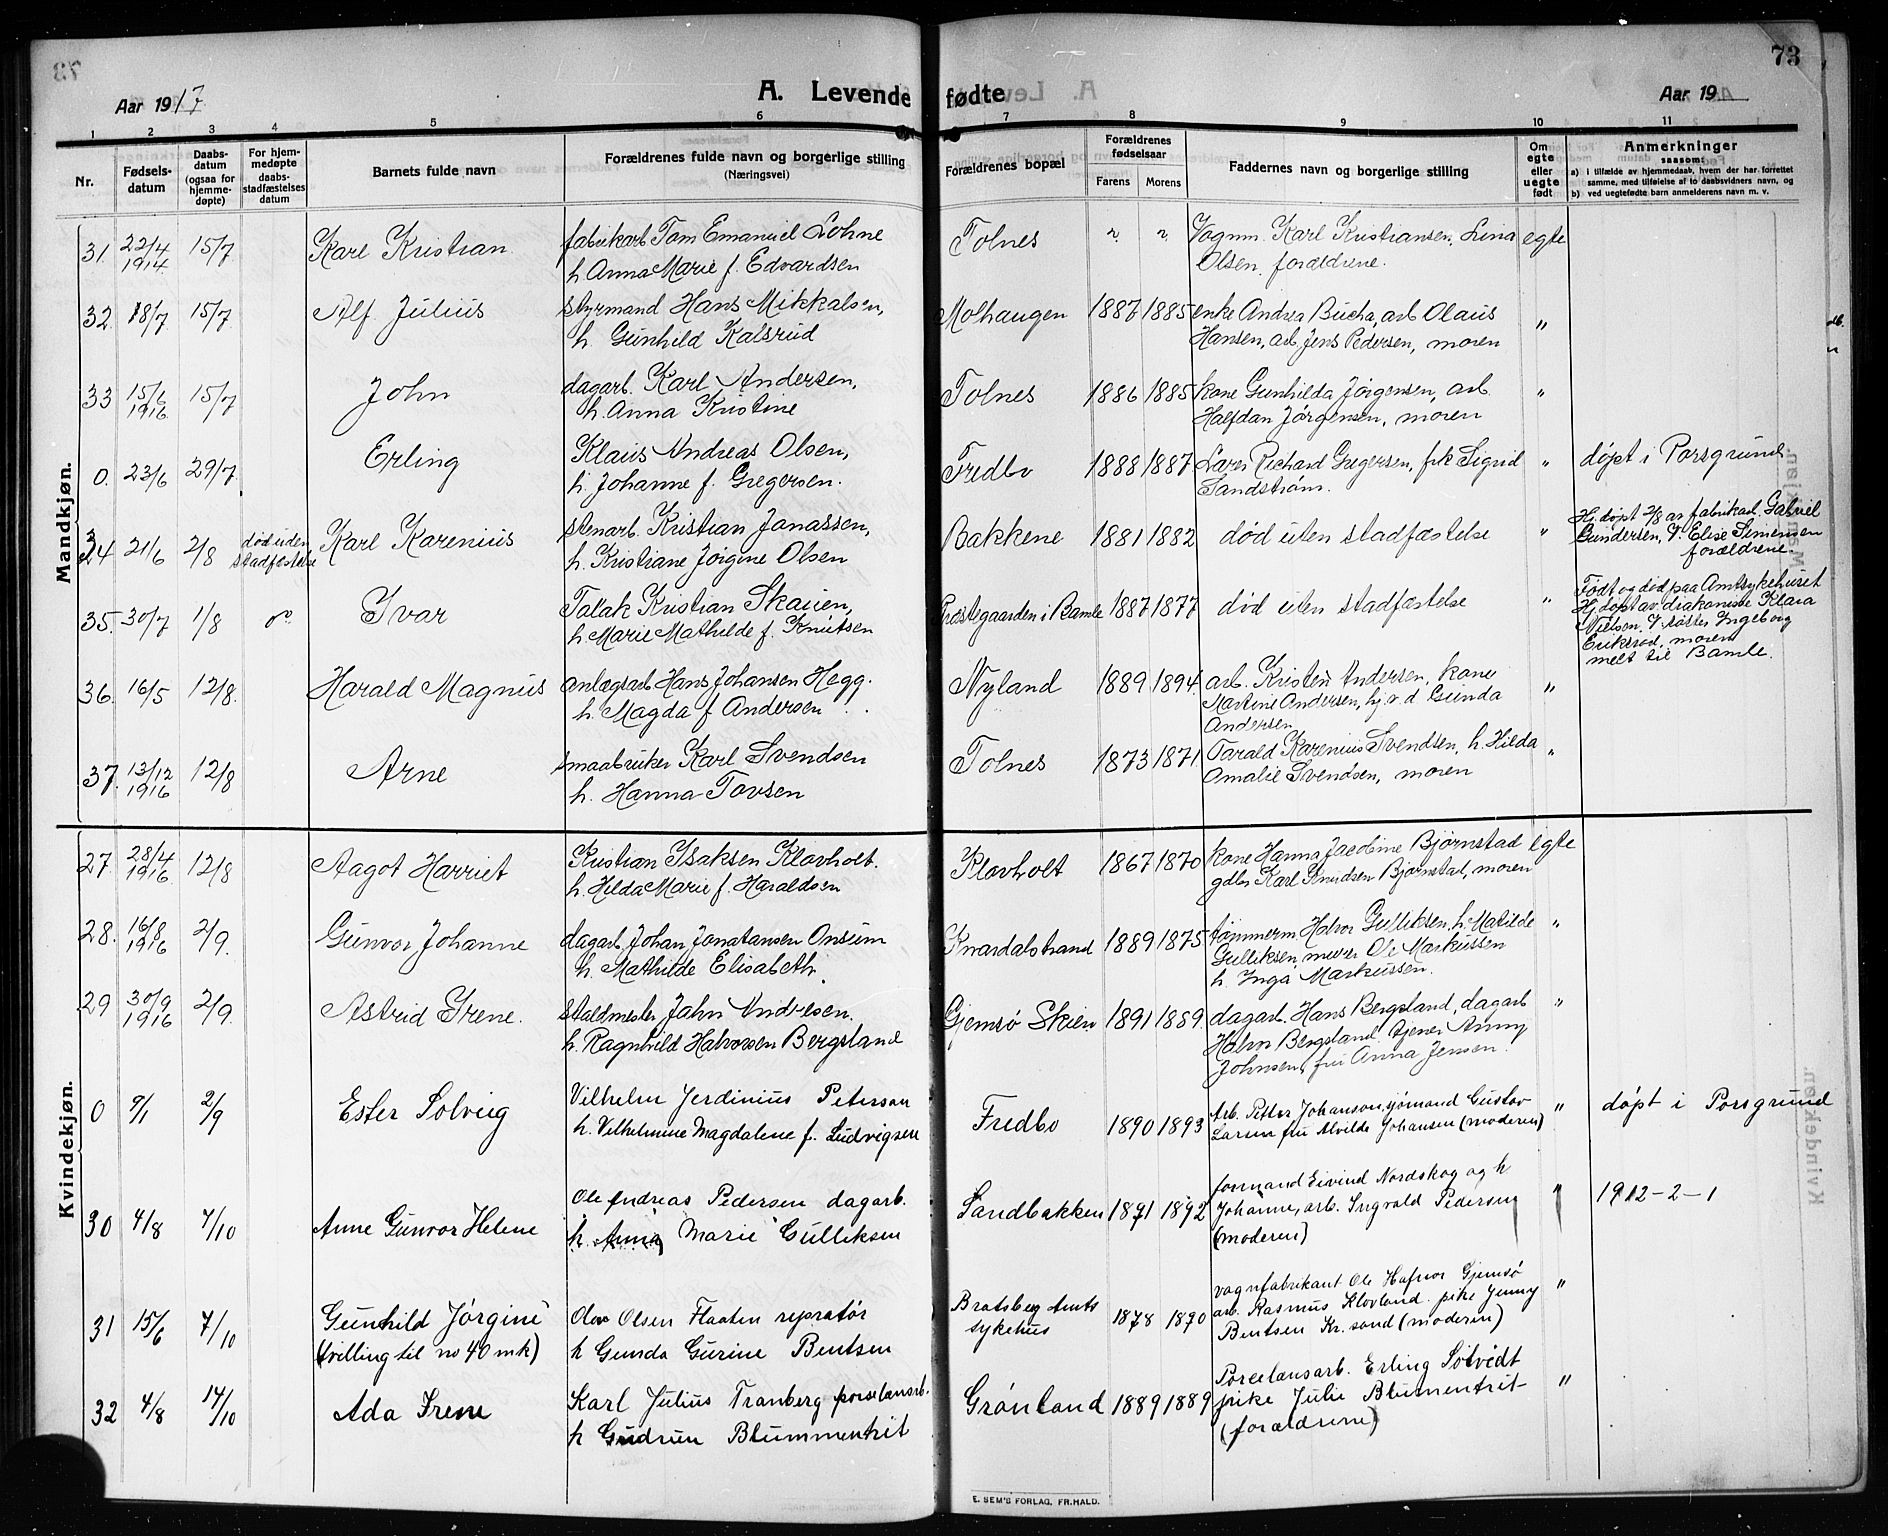 73
Aar 1917
A. Levende fødte
Aar 19
1 2 3 4 5 6 7 8 9 10 11
Nr.
Fødsels-
datum
Daabs-
datum
(ogsaa for
hjemme-
døpte)
For hjem-
medøpte
daabs-
stadfæstelses
datum
Barnets fulde navn
Forældrenes fulde navn og borgerlige stilling
(Næringsvei)
Forældrenes bopæl
Forældrenes
fødselsaar
Farens Morens
Faddernes navn og borgerlige stilling
Om
egte
eller
uegte
født
Anmerkninger
saasom:
a) i tilfælde av hjemmedaab, hvem der har forrettet
samme, med tilføielse af to daabsvidners navn, og
b) ved uegtefødte barn anmelderens navn m. v.
Mandkjøn.
31. 22/4 1914 15/7 Karl Kristian fabrikarb Tom Emanuel Lohne
h. Anna Marie f. Edvardsen
Tolnes " " Vognm. Karl Kristiansen, Lina
Olsen, forældrene. egte
32. 18/7 15/7 Alf Julius styrmand Hans Mikkalsen,
h. Gunhild Kalsrud
Molhaugen 1887 1885 enke Andrea Bucha, arb Olaus
Hansen, arb. Jens Pedersen, moren "
33 15/6 1916 15/7 John dagarb. Karl Andersen,
h. Anna Kristine
Tolnes 1886 1885 kone Gunhilda Jørgensen, arb.
Halfdan Jørgensen, moren "
0. 23/6 29/7 Erling Klaus Andreas Olsen,
h. Johanne f. Gregersen.
Fredbo 1888 1887 Lars Richard Gregersen, frk Sigrid
Sandstrøm. " døpt i Porsgrund
34 21/6 2/8 død uden
stadfæstelse Karl Karenius stenarb. Kristian Janassen,
h. Kristiane Jørgine Olsen
Bakkene 1881 1882 død uten stadfæstelse "
Hj. døpt 2/8 av fabrikarb. Gabriel
Gundersen, V. Elise Simensen
forældrene.
35. 30/7 1/8 do Ivar Tallak Kristian Skauen,
h. Marie Mathilde f. Knutsen
Præstegaarden i Bamle 1887 1877 død uten stadfæstelse "
Født og død paa Amtsykehuset
Hj. døpt av diakonisse Klara
Nielsen, V. søster Ingeborg
Eriksrød, moren
melt til Bamle.
36. 16/5 12/8. Harald Magnus anlægsarb Hans Johansen Hegg.
h. Magda f. Andersen
Nyland 1889 1894 arb. Kristen Andersen, kone
Martine Andersen, hj. v. d Gunda
Andersen "
37. 13/12 1916 12/8 Arne smaabruker Karl Svendsen
h. Hanna Tovsen
Tolnes 1873 1871 Tarald Karenius Svendsen, h. Hilda
Amalie Svendsen, moren "
Kvindekjøn.
27. 28/4 1916 12/8 Aagot Harriet Kristian Isaksen Klovholt.
h. Hilda Marie f. Haraldsen
Klovholt 1867 1870 kone Hanna Jacobine Bjørnstad
gdbr Karl Knudsen Bjørnstad, moren egte
28. 16/8 1916 2/9. Gunvor Johanne dagarb. Johan Jonatansen Onsum
h. Mathilde Elisabeth
Knardalstrand 1889 1875 tømmerm. Halvor Gulliksen, h. Matilde
Gulliksen, murer Ole Markussen
h. Inga Markussen. "
29 30/9 1916 2/9. Astrid Irene. staldmester Jahn Andresen.
h. Ragnhild Halvorsen Bergsland
Gjemsø Skien 1891 1889. dagarb. Hans Bergsland, dagarb
Halvor Bergsland. tjener Anny
Johnsen, fru Anna Jensen. "
0 9/1 2/9 Ester Solveig Vilhelm Jerdinius Peterson
h. Vilhelmine Magdalene f. Ludvigsen
Fredbo 1890 1893 Arb. Petter Johanson, sjømand Gustav
Larsen fru Alvilde Johansen (moderen) " døpt i Porsgrund
30 4/8 7/10 Anne Gunvor Helene Ole Andreas Pedersen dagarb.
h. Anna Marie Gulliksen
Sandbakken 1891 1892 formand Eivind Nordskog og h
Johanne, arb. Ingvald Pedersen
(moderen) " 1912-2-1
31 15/6 7/10 Gunhild Jørgine
(tvilling til no 40 mk) Olav Olsen Flaaten repratør
h Gunda Gurine Bentsen
Bratsberg Amts
sykehus 1878 1890 vognfabrikant Ole Hafnor Gjemsø
arb. Rasmus Klovland. pike Jenny
Bentsen Kr. sand (moderen) "
32 4/8 14/10 Ada Irene Karl Julius Tranberg porselænsarb.
h Gudrun Blummentrit
Grønland 1889 1889 Porcelansarb. Erling Solvedt
pike Julie Blumentrit
(forældrene) "
E. SEM'S FORLAG, FR.HALD.